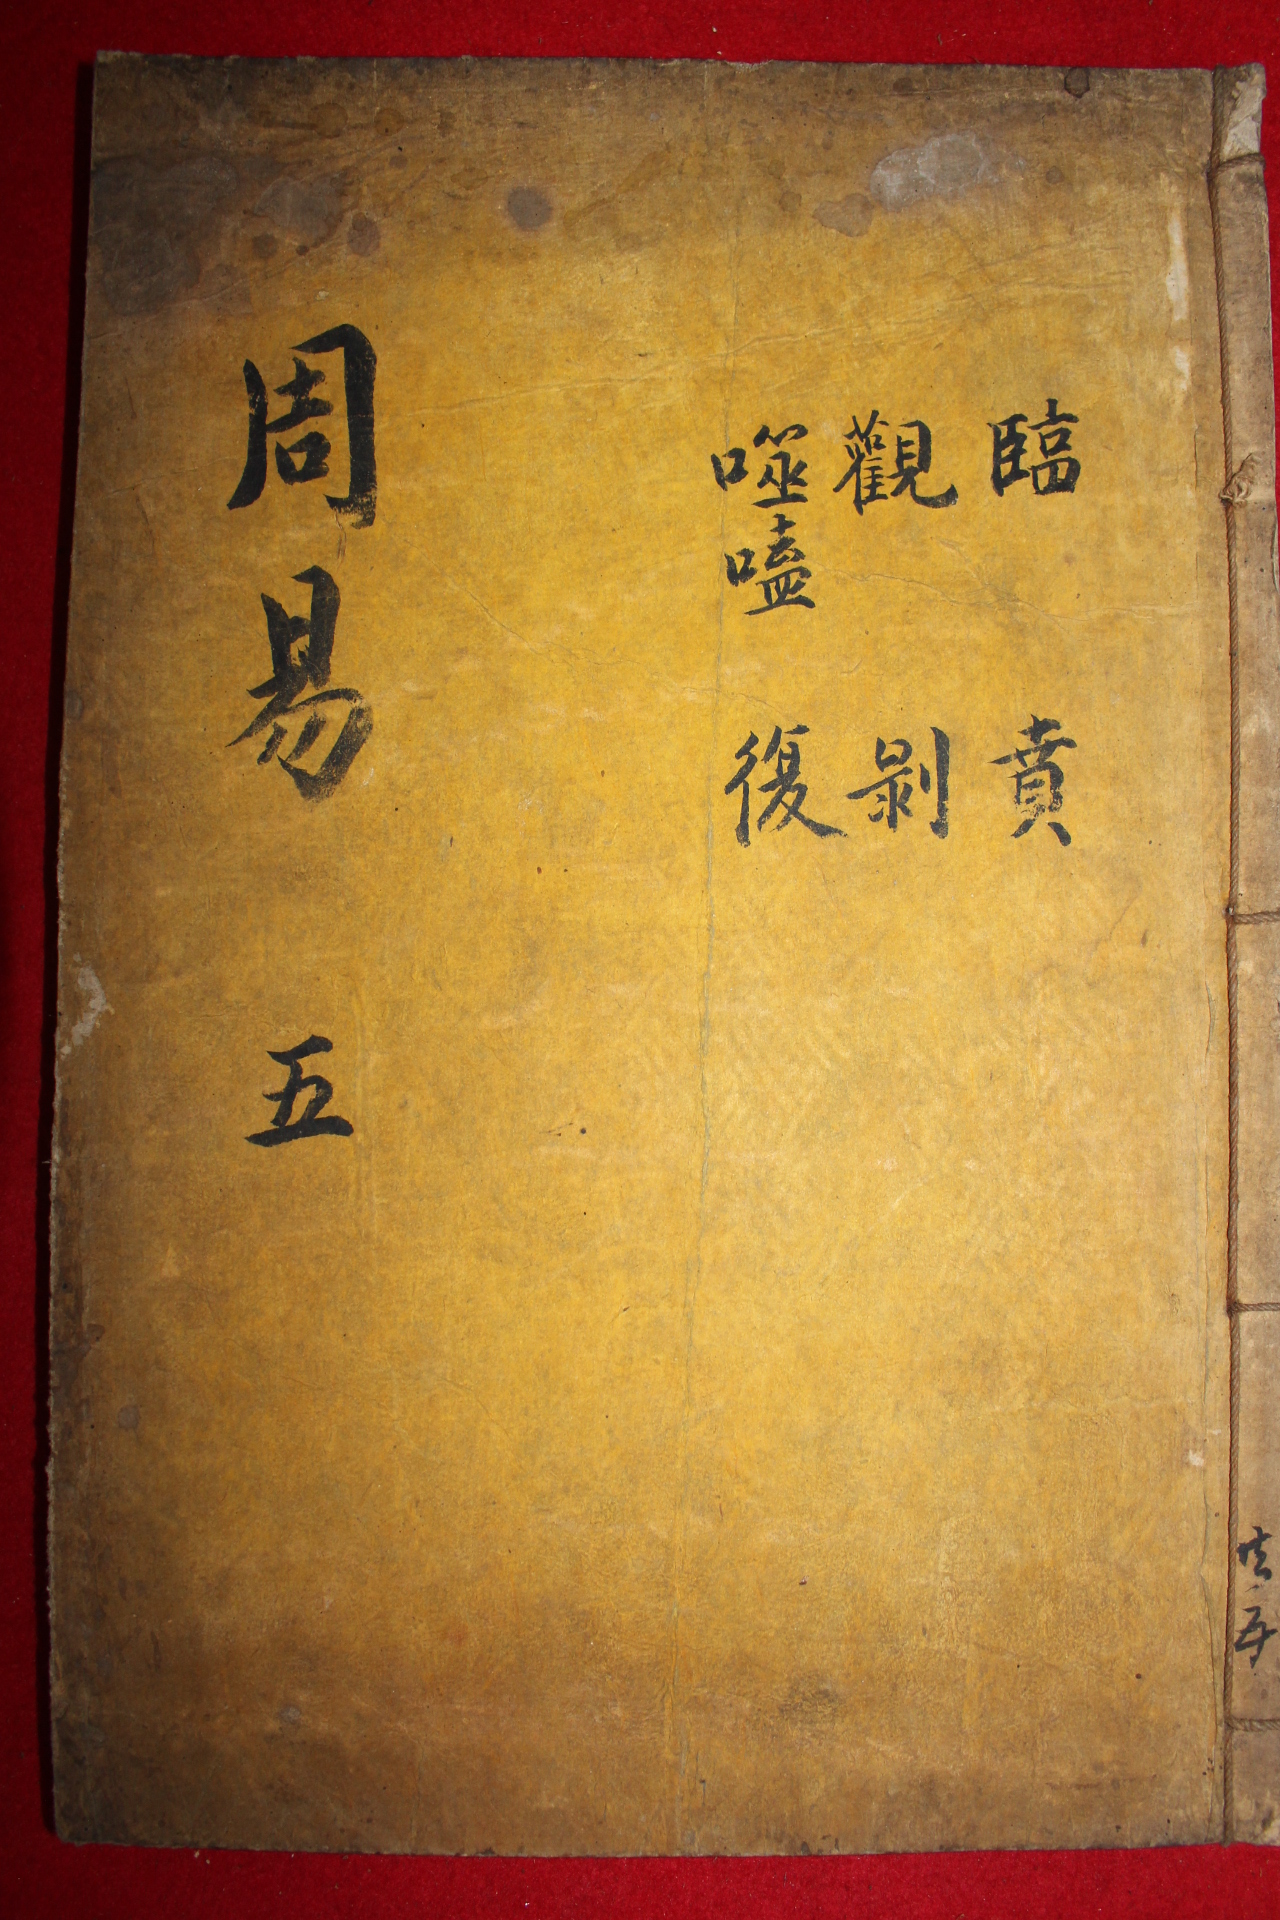 臨
觀
噬嗑
賁
剝
復
周易 五